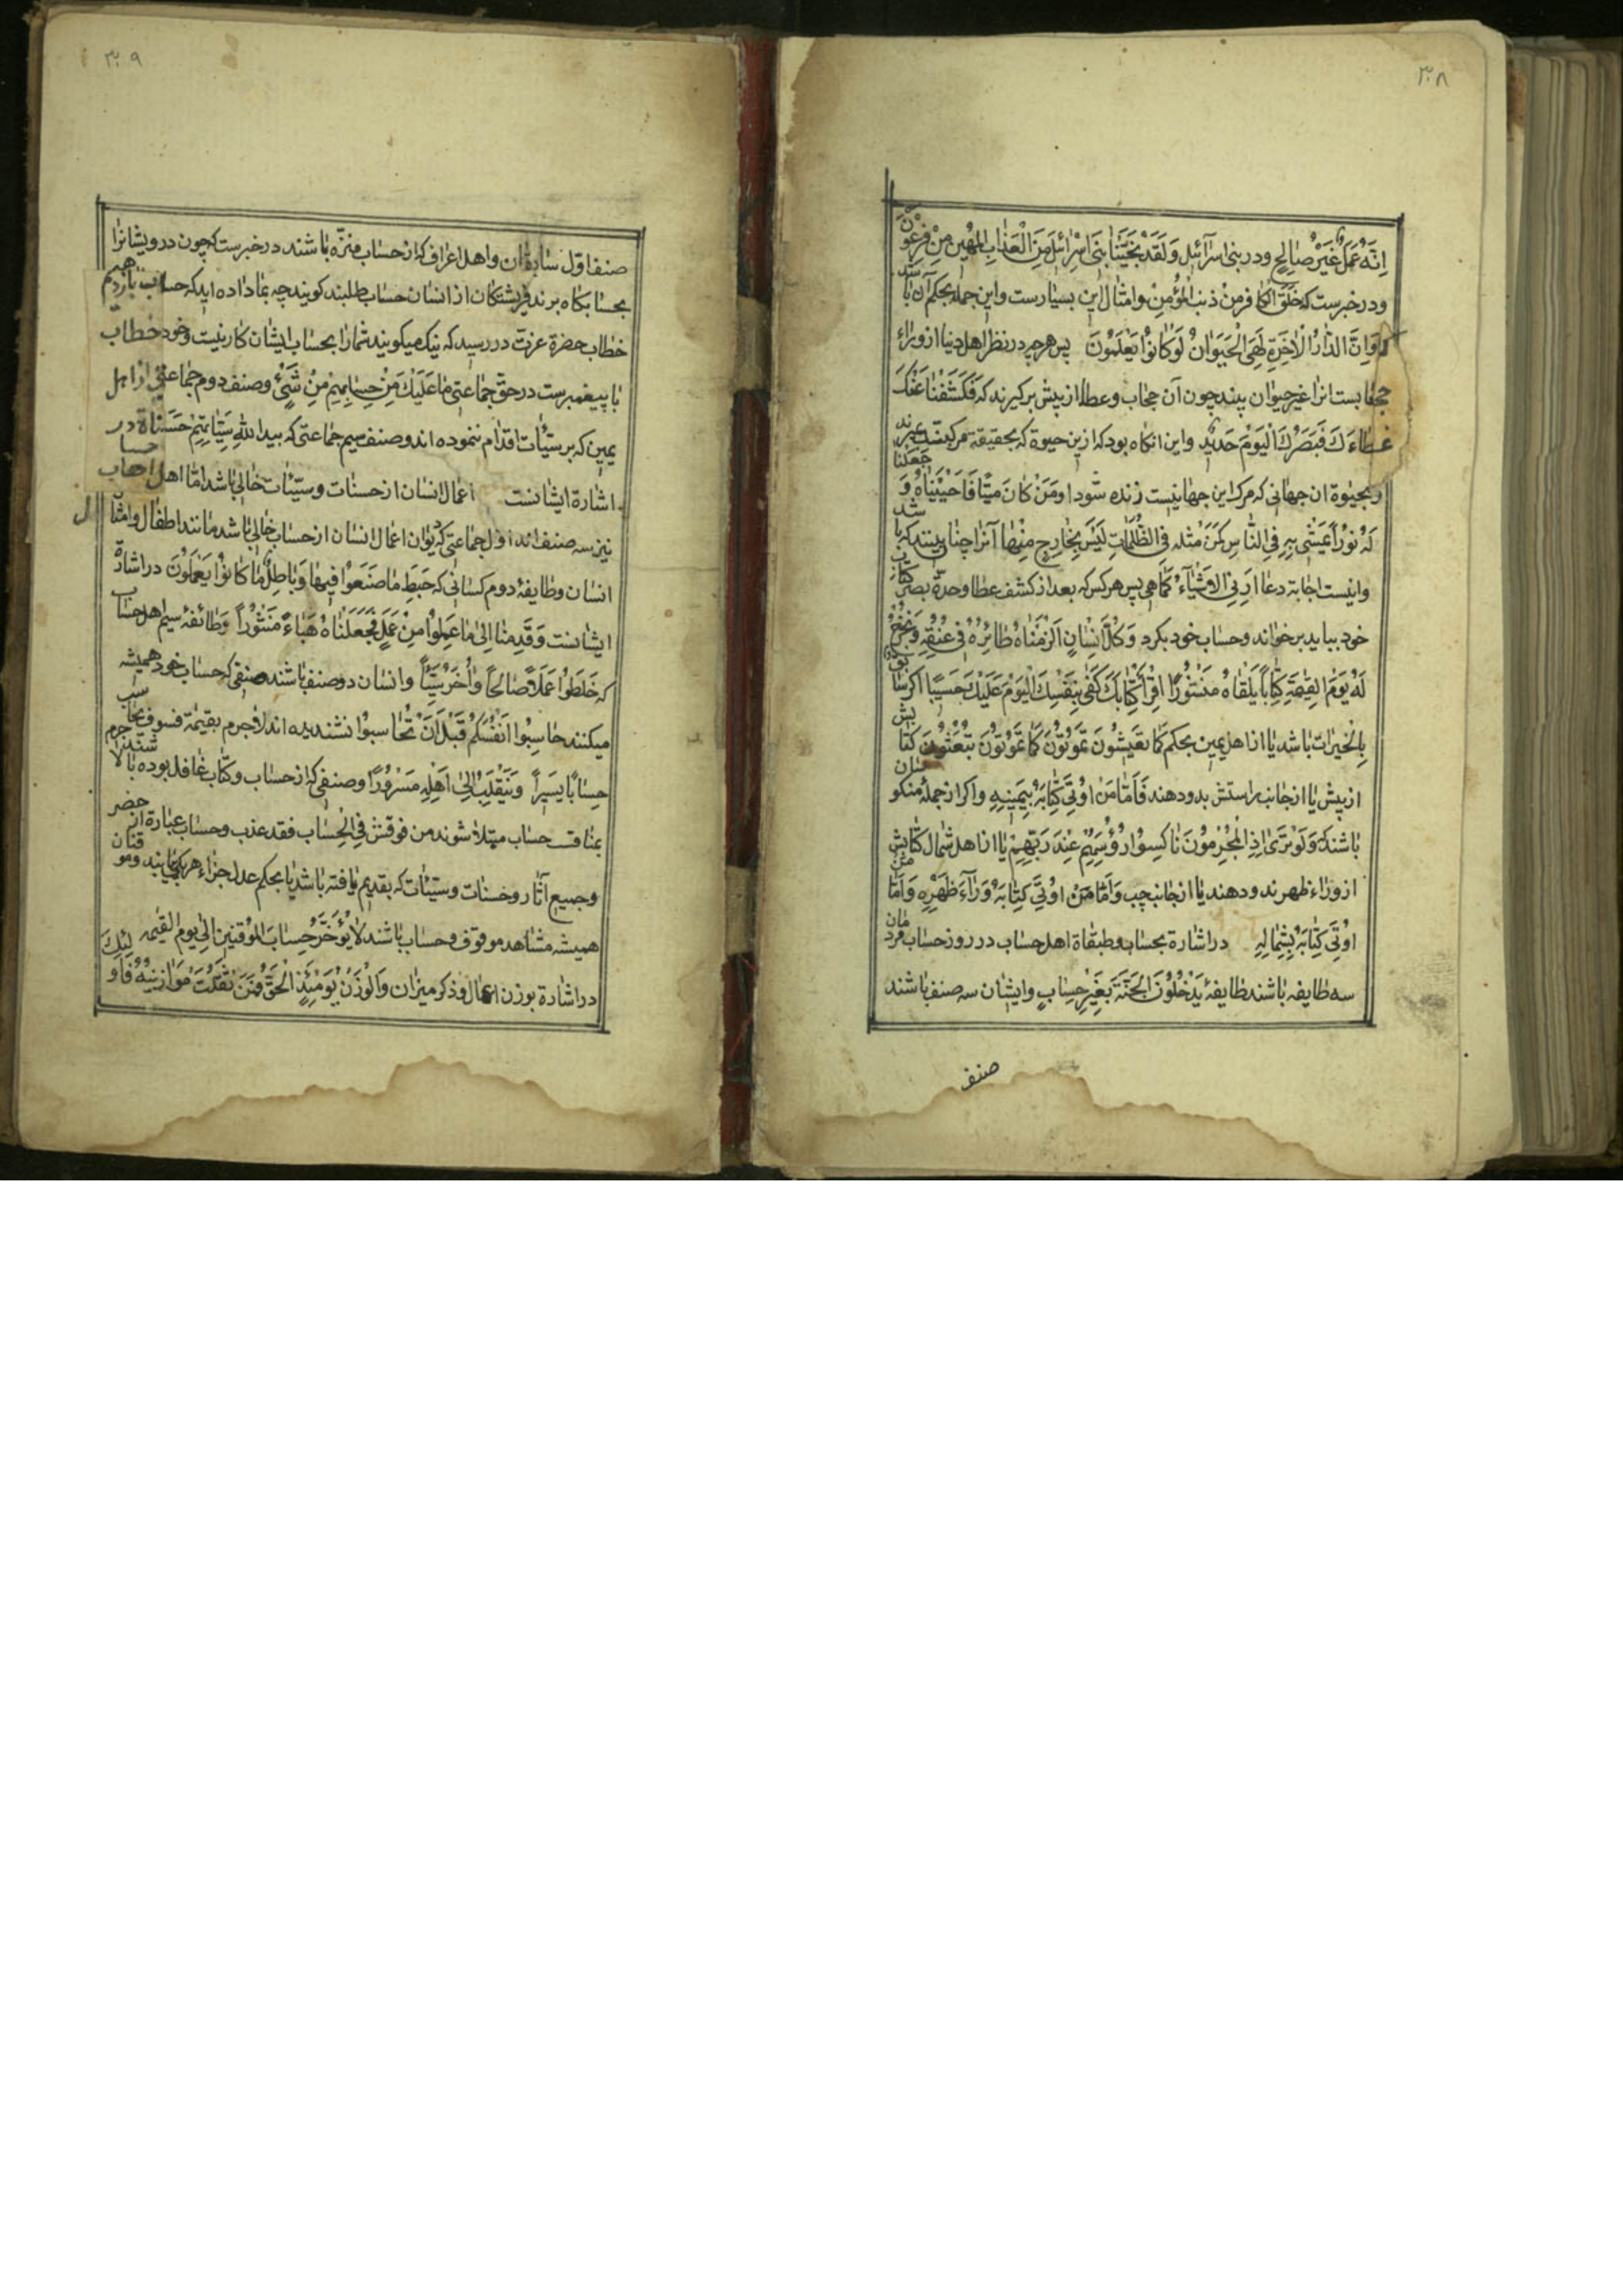 ۳۰۸
اِنَّهُ عَمَلٌ غَیْرُ صٰالِحٍ ودر بنی اسرآئیل وَلَقَدْ نَجَّیْنٰا بَنٖی اِسْرٰائٖلَ مِنَ الْعَذٰابِ الْمُهٖینِ مِنْ فِرْعَوْنَ
ودر خبرست که خَلَقَ الکٰافر مِنْ ذنب المُؤمِنْ وامثٰال این بسیٰارست واین جمله بحکم آن بٰاشد
که وَاِنَّ الدّٰارَ الْاٰخِرَةَ لَهِیَ الْحَیَوٰانُ لَوْ کٰانُوٰا یَعْلَمُونَ پس هرچه در نظر اهل دنیٰا از ورٰاء
حجٰابست انرٰا غیر حیوٰان بینند چون آن حجٰاب وغطٰا از پیش برکیرند که فَکَشَفْنٰا عَنْكَ
غِطٰاءَكَ فَبَصَرُكَ الْیَوْمَ حَدٖیدٌ واین انکٰاه بود که ازین حیوة که بحقیقة مرکیست بمیرند
وبحیٰوة ان جهٰانی که مرك این جهٰانیست زنده شود اوَمَنْ کٰانَ مَیْتًا فَاَحْیَیْنٰاهُ وَ جَعَلْنٰا
لَهُ نُورًا یَمْشٖی بِهٖ فِی النّٰاسِ کَمَنْ مَثَلُه فِی الظُّلُمٰاتِ لَیْسَ بِخٰارِجٍ مِنْهٰا آنرٰا چنٰان بینند که بٰا شد
واینست اجٰابة دعٰا اَرِنی الاشیٰاءَ کَمٰا هِیَ پس هرکس که بعد از کشف غطٰا وحدّة بصر کتٰاب
خود ببٰاید برخوٰاند وحسٰاب خود بکرد وَکُلَّ اِنْسٰانٍ اَلْزَمْنٰاهُ طٰائِرَهُ فٖی عُنُقِهٖ وَنُخْرِجُ
لَهُ یَوْمَ القِیٰمَةِ کِتٰابًا یَلْقٰاهُ مَنْشُورًا اِقْرَأْ کِتٰابَكَ کَفٰی بِنَفْسِكَ الْیَوْمَ عَلَیْكَ حَسٖیبًا اکر سٰابق
بِالْخَیْرٰاتِ بٰاشد یٰا از اهل یمین بحکم کمٰا تَعیشُونَ تَمُوتُونَ کَمٰا تَمُوتُونَ تُبْعَثُونَ کتٰابش
از پیش یٰا از جٰانب رٰاستش بدو دهند فَاَمّٰا مَنْ اُوتِیَ کِتٰابَهُ بِیَمٖینِهٖ واکر از جملهٔ منکوسٰان
بٰاشند که وَلَوْ تَرٰی اِذِ الْمُجْرِمُونَ نٰاکِسُوا رُؤُسِهِمْ عِنْدَ رَبِّهِمْ یٰا از اهل شمٰال کتٰابش
از ورٰاء ظهر بدو دهند یٰا از جٰانب چپ وَاَمّٰا مَنْ اُوتِیَ کِتٰابَهُ وَرٰآءَ ظَهْرِهٖ وَاَمّٰا مَنْ
اُوتِیَ کِتٰابَهُ بِشِمٰالِهٖ در اشٰارة بحسٰاب وطبقٰاة اهل حسٰاب در روز حسٰاب مردمٰان
سه طٰایفه بٰاشند طٰایفهٔ یَدْخُلُونَ الْجَنَّةَ بِغَیْرِ حِسٰابٍ وایشٰان سه صنف بٰاشند
صنف
۳۰۹
صنف اوّل سٰابقٰان واهل اعرٰاف که از حسٰاب منزّه بٰاشند در خبرست که چون درویشٰانرٰا
بحسٰابکٰاه برند فریشتکٰان از انسٰان حسٰاب طلبند کویند چه بمٰا دٰاده اید که حسٰاب بٰازدهیم
خطٰاب حضرة عزت در رسید که نیك میکویند شمٰارٰا بحسٰاب ایشٰان کٰار نیست وخود خطٰاب
بٰا پیغمبرست در حقّ جمٰاعتی مٰا عَلَیْكَ مِنْ حِسٰابِهِمْ مِنْ شَیْءٍ وصنف دوم جمٰاعتی از اهل
یمین که بر سیّئٰات اقدٰام ننموده اند وصنف سیم جمٰاعتی که یبدّل اللهُ سَیِّئٰاتِهِمْ حَسَنٰاة در
اشٰارة ایشٰانست اعمٰال انسٰان از حسنٰات وسیّئٰات خٰالی بٰاشد امّٰا اهل حسٰاب
نیز سه صنف اند اول جمٰاعتی که دیوٰان اعمٰال انسٰان از حسٰاب خٰالی بٰاشد مٰانند اطفٰال وامثٰال
انسٰان وطٰایفهٔ دوم کسٰانی که حَبَطِ مٰا صَنَعُوا فٖیهٰا وَبٰاطِلٌ مٰا کٰانُوا یَعْمَلُونَ در اشٰارة
ایشٰانست وَقَدِمْنٰا اِلیٰ مٰا عَمِلُوا مِنْ عَمَلٍ فَجَعَلْنٰاهُ هَبٰاءً مَنْثُورًا وَطٰائفهٔ سیم اهل حسٰاب
که خَلَطُوا عَمَلًا صٰالِحًا وَاٰخَرَ سَیِّئًا وانسٰان دو صنف بٰاشند صنفی که حسٰاب خود همیشه
میکنند حٰاسِبُوا اَنْفُسَکُمْ قَبْلَ اَنْ تُحٰاسبُوا نشنیده اند لاجرم بقیٰمة فسوف یحٰاسب
حِسٰابًا یَسٖیرًا وَیَنْقَلِبُ اِلیٰ اَهْلِهٖ مَسْرُورًا وصنفی که از حسٰاب وکتٰاب غٰافل بوده بٰاشند لاجرم
بمنٰاقشه حسٰاب مبتلا شوند من نوقش فِی الْحِسٰاب فقد عذب وحسٰاب عبٰارة از حضر
وجمیع آثٰار وحسنٰات وسیّئٰات که بقدیم یٰافته بٰاشد یٰا بحکم عدل جزٰاء هریك بیٰابند وموقنان
همیشه مشٰاهد موقوف وحسٰاب بٰاشند لٰا یُؤَخَّرُ حِسٰابَ المُوْقِنٖینَ اِلیٰ یوم القیٰمه
در اشٰارة بوزن اعمٰال وذکر میزٰان وَالْوَزْنُ یَوْمَئِذٍ الْحَقُّ فَمَنْ ثَقُلَتْ مَوٰازٖینُهُ فَاُولٰئِكَ